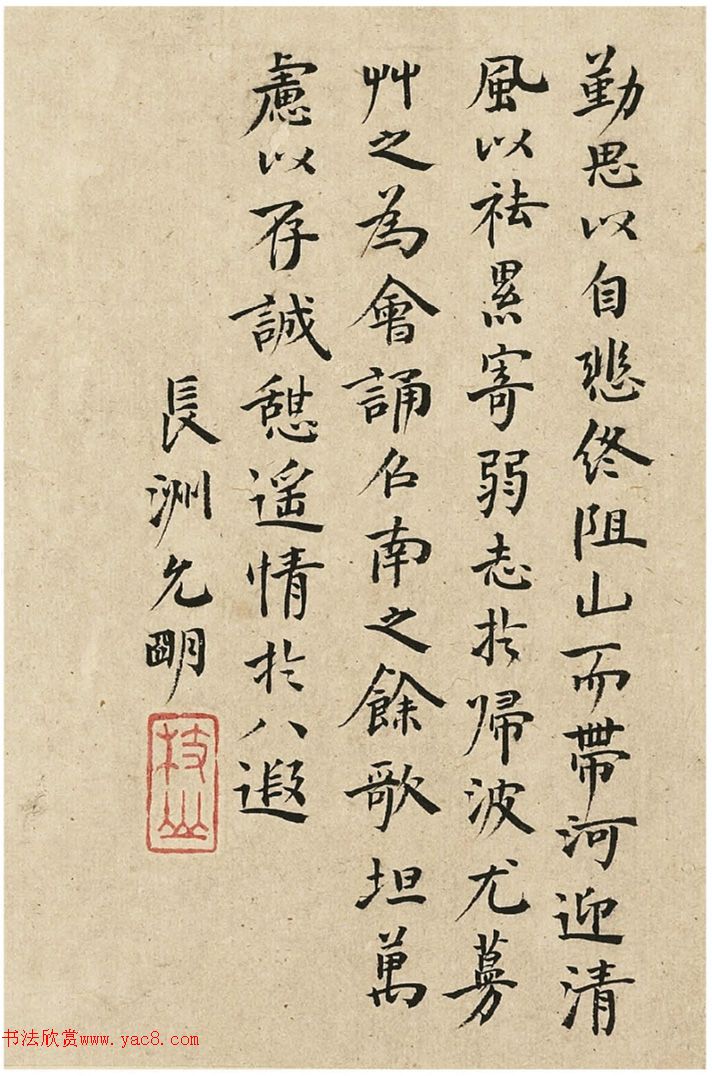 勤思以自悲終阻山而帶河迎清
風以袪累寄弱志扵歸波尤蔓
艸之為會誦召南之餘歌坦萬
慮以存誠憇遥情扵八遐
長洲允明
枝山
书法欣赏www.yac8.com